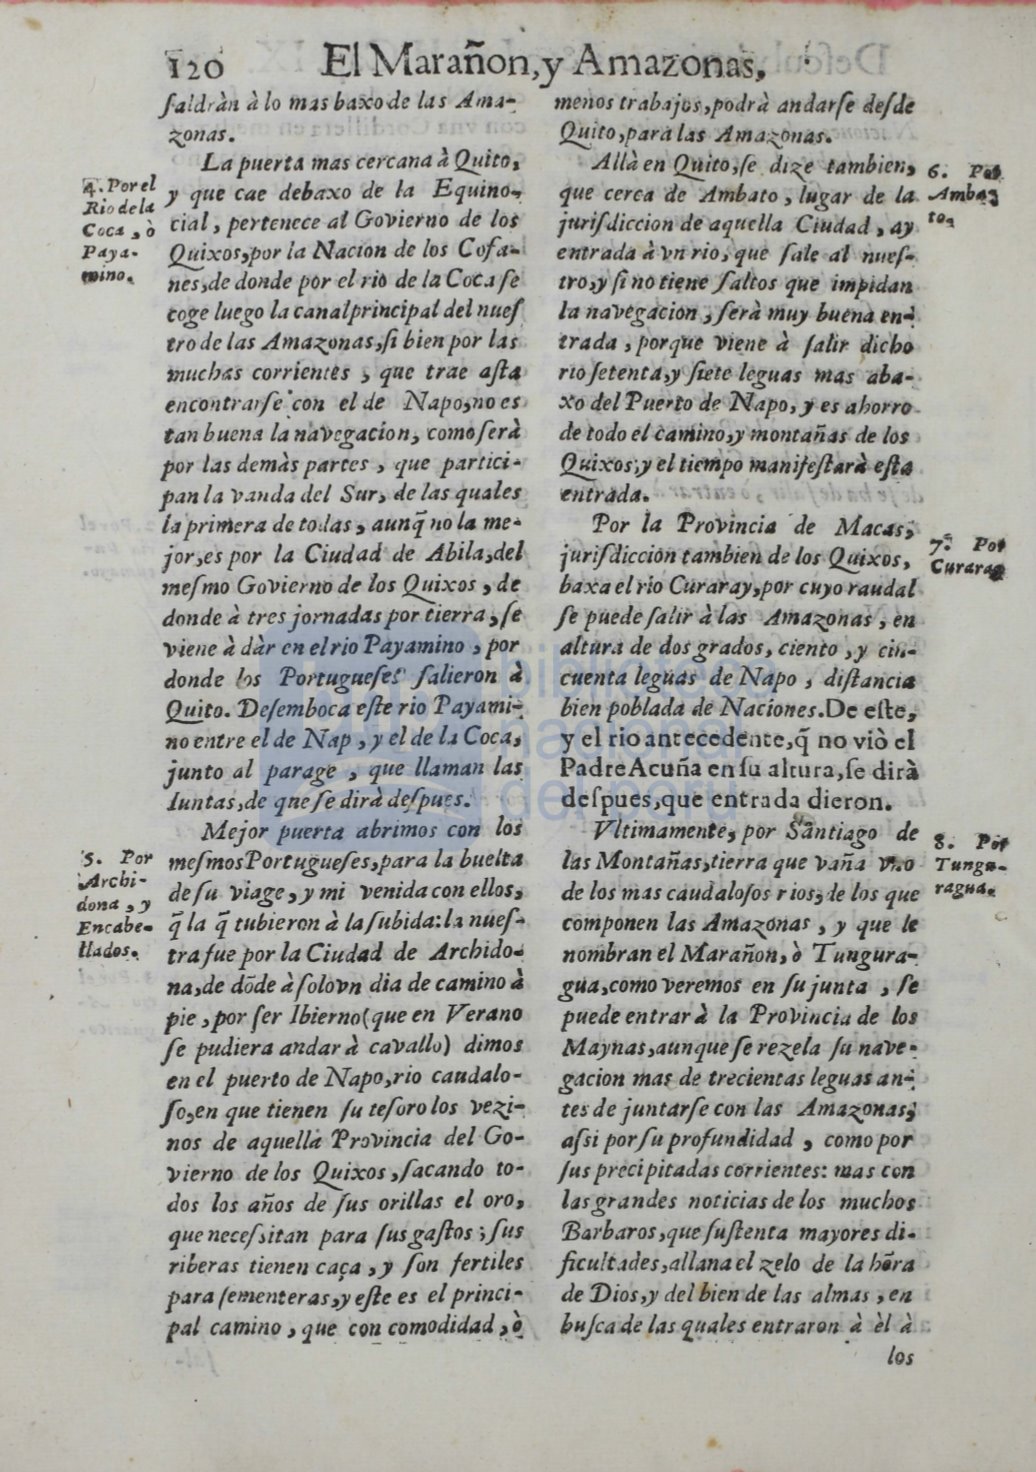 120 El Marañon, y Amazonas,
saldràn à lo mas baxo de las Ama-
zonas.
La puerta mas cercana à Quito,
y que cae debaxo de la Equino-
cial, pertenece al Govierno de los
Quixos, por la Nacion de los Cofa-
nes, de donde por el rio de la Coca se
coge luego la canal principal del nues
tro de las Amazonas, si bien por las
muchas corrientes, que trae asta
encontrarse con el de Napo, no es
tan buena la navegacion, como serà
por las demàs partes, que partici-
pan la vanda del Sur, de las quales
la primera de todas, aunq̃ no la me-
jor, es por la Ciudad de Abila, del
mesmo Govierno de los Quixos, de
donde à tres jornadas por tierra, se
viene à dàr en el rio Payamino, por
donde los Portugueses salieron à
Quito. Desemboca este rio Payami-
no entre el de Nap, y el de la Coca,
junto al parage, que llaman las
Iuntas, de que se dirà despues.
Mejor puerta abrimos con los
mesmos Portugueses, para la buelta
de su viage, y mi venida con ellos,
q̃ la q̃ tubieron à la subida: la nues-
tra fue por la Ciudad de Archido-
na, de dõde à solo vn dia de camino à
pie, por ser Ibierno (que en Verano
se pudiera andar à cavallo) dimos
en el puerto de Napo, rio caudalo-
so, en que tienen su tesoro los vezi-
nos de aquella Provincia del Go-
vierno de los Quixos, sacando to-
dos los años de sus orillas el oro,
que necessitan para sus gastos; sus
riberas tienen caça, y son fertiles
para sementeras, y este es el princi-
pal camino, que con comodidad, ò
4. Por el
Rio de la
Coca, ò
Paya-
mino.
5. Por
Archi-
dona, y
Encabe-
llados.
menos trabajos, podrà andarse desde
Quito, para las Amazonas.
Allà en Quito, se dize tambien,
que cerca de Ambato, lugar de la
jurisdiccion de aquella Ciudad, ay
entrada à vn rio, que sale al nues-
tro, y si no tiene saltos que impidan
la navegacion, serà muy buena en-
trada, porque viene à salir dicho
rio setenta, y siete leguas mas aba-
xo del Puerto de Napo, y es ahorro
de todo el camino, y montañas de los
Quixos; y el tiempo manifestarà esta
entrada.
Por la Provincia de Macas,
jurisdiccion tambien de los Quixos,
baxa el rio Curaray, por cuyo raudal
se puede salir à las Amazonas, en
altura de dos grados, ciento, y cin-
cuenta leguas de Napo, distancia
bien poblada de Naciones. De este,
y el rio antecedente, q̃ no viò el
Padre Acuña en su altura, se dirà
despues, que entrada dieron.
Vltimamente, por Santiago de
las Montañas, tierra que vaña vno
de los mas caudalosos rios, de los que
componen las Amazonas, y que le
nombran el Marañon, ò Tungura-
gua, como veremos en su junta, se
puede entrar à la Provincia de los
Maynas, aunque se rezela su nave-
gacion mas de trecientas leguas an-
tes de juntarse con las Amazonas,
assi por su profundidad, como por
sus precipitadas corrientes: mas con
las grandes noticias de los muchos
Barbaros, que sustenta mayores di-
ficultades, allana el zelo de la hõra
de Dios, y del bien de las almas, en
busca de las quales entraron à èl à
los
6. Por
Amba-
to.
7. Por
Curaray
8. Por
Tungu-
ragua.
biblioteca
nacional
del perú